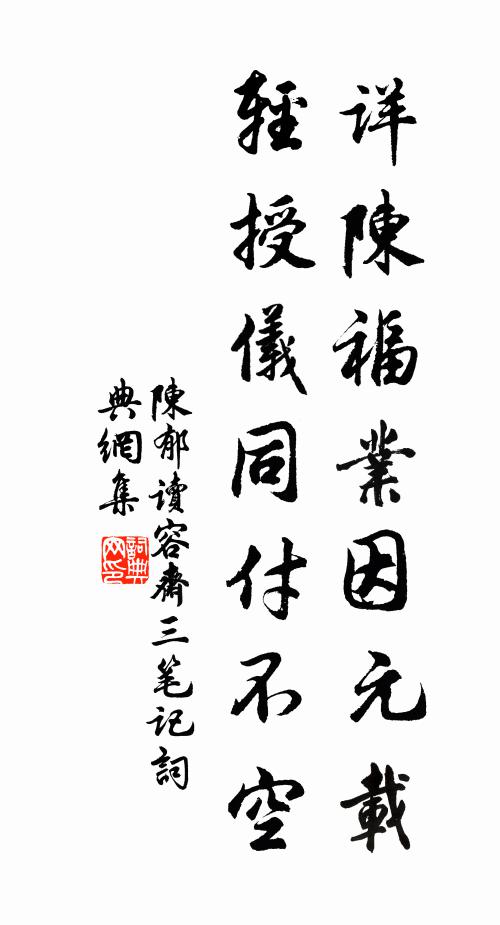 详陳福業因元載
輕授儀同付不空
陳郁讀容齋三笔记詞
典網集
詞典
网印